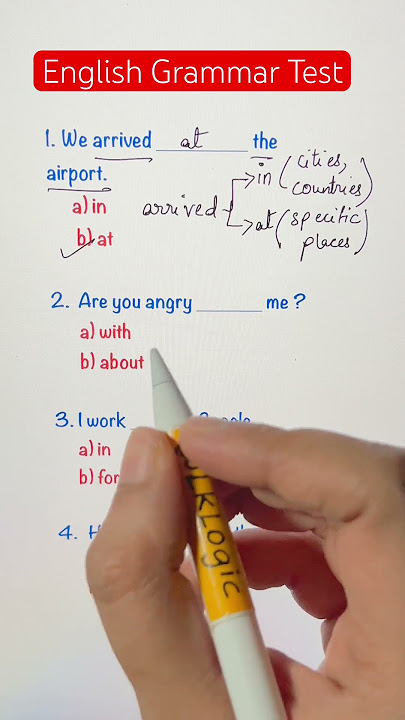 English Grammar Test
1. We arrived at the
airport.
a) in
b) at
arrived
in (cities, countries)
at (specific places)
2. Are you angry ______ me ?
a) with
b) about
3. I work
a) in
b) for
4.
LKLogic